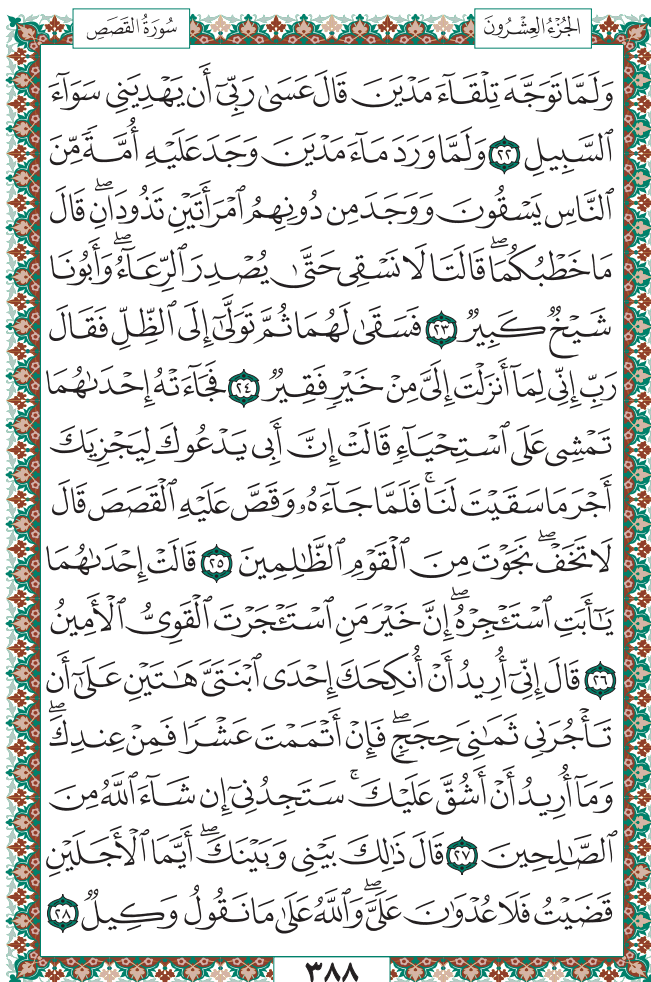 سُورَةُ القَصَصِ الجُزْءُ العِشْرُونَ
وَلَمَّا تَوَجَّهَ تِلْقَآءَ مَدْيَنَ قَالَ عَسَىٰ رَبِّىٓ أَن يَهْدِيَنِى سَوَآءَ
ٱلسَّبِيلِ ٢٢ وَلَمَّا وَرَدَ مَآءَ مَدْيَنَ وَجَدَ عَلَيْهِ أُمَّةً مِّنَ
ٱلنَّاسِ يَسْقُونَ وَوَجَدَ مِن دُونِهِمُ ٱمْرَأَتَيْنِ تَذُودَانِۖ قَالَ
مَا خَطْبُكُمَاۖ قَالَتَا لَا نَسْقِى حَتَّىٰ يُصْدِرَ ٱلرِّعَآءُۖ وَأَبُونَا
شَيْخٌ كَبِيرٌ ٢٣ فَسَقَىٰ لَهُمَا ثُمَّ تَوَلَّىٰٓ إِلَى ٱلظِّلِّ فَقَالَ
رَبِّ إِنِّى لِمَآ أَنزَلْتَ إِلَىَّ مِنْ خَيْرٍ فَقِيرٌ ٢٤ فَجَآءَتْهُ إِحْدَىٰهُمَا
تَمْشِى عَلَى ٱسْتِحْيَآءٍ قَالَتْ إِنَّ أَبِى يَدْعُوكَ لِيَجْزِيَكَ
أَجْرَ مَا سَقَيْتَ لَنَاۚ فَلَمَّا جَآءَهُۥ وَقَصَّ عَلَيْهِ ٱلْقَصَصَ قَالَ
لَا تَخَفْۖ نَجَوْتَ مِنَ ٱلْقَوْمِ ٱلظَّٰلِمِينَ ٢٥ قَالَتْ إِحْدَىٰهُمَا
يَٰٓأَبَتِ ٱسْتَـْٔجِرْهُۖ إِنَّ خَيْرَ مَنِ ٱسْتَـْٔجَرْتَ ٱلْقَوِىُّ ٱلْأَمِينُ
٢٦ قَالَ إِنِّىٓ أُرِيدُ أَنْ أُنكِحَكَ إِحْدَى ٱبْنَتَىَّ هَٰتَيْنِ عَلَىٰٓ أَن
تَأْجُرَنِى ثَمَٰنِىَ حِجَجٍۖ فَإِنْ أَتْمَمْتَ عَشْرًا فَمِنْ عِندِكَۖ
وَمَآ أُرِيدُ أَنْ أَشُقَّ عَلَيْكَۚ سَتَجِدُنِىٓ إِن شَآءَ ٱللَّهُ مِنَ
ٱلصَّٰلِحِينَ ٢٧ قَالَ ذَٰلِكَ بَيْنِى وَبَيْنَكَۖ أَيَّمَا ٱلْأَجَلَيْنِ
قَضَيْتُ فَلَا عُدْوَٰنَ عَلَىَّۖ وَٱللَّهُ عَلَىٰ مَا نَقُولُ وَكِيلٌ ٢٨
٣٨٨